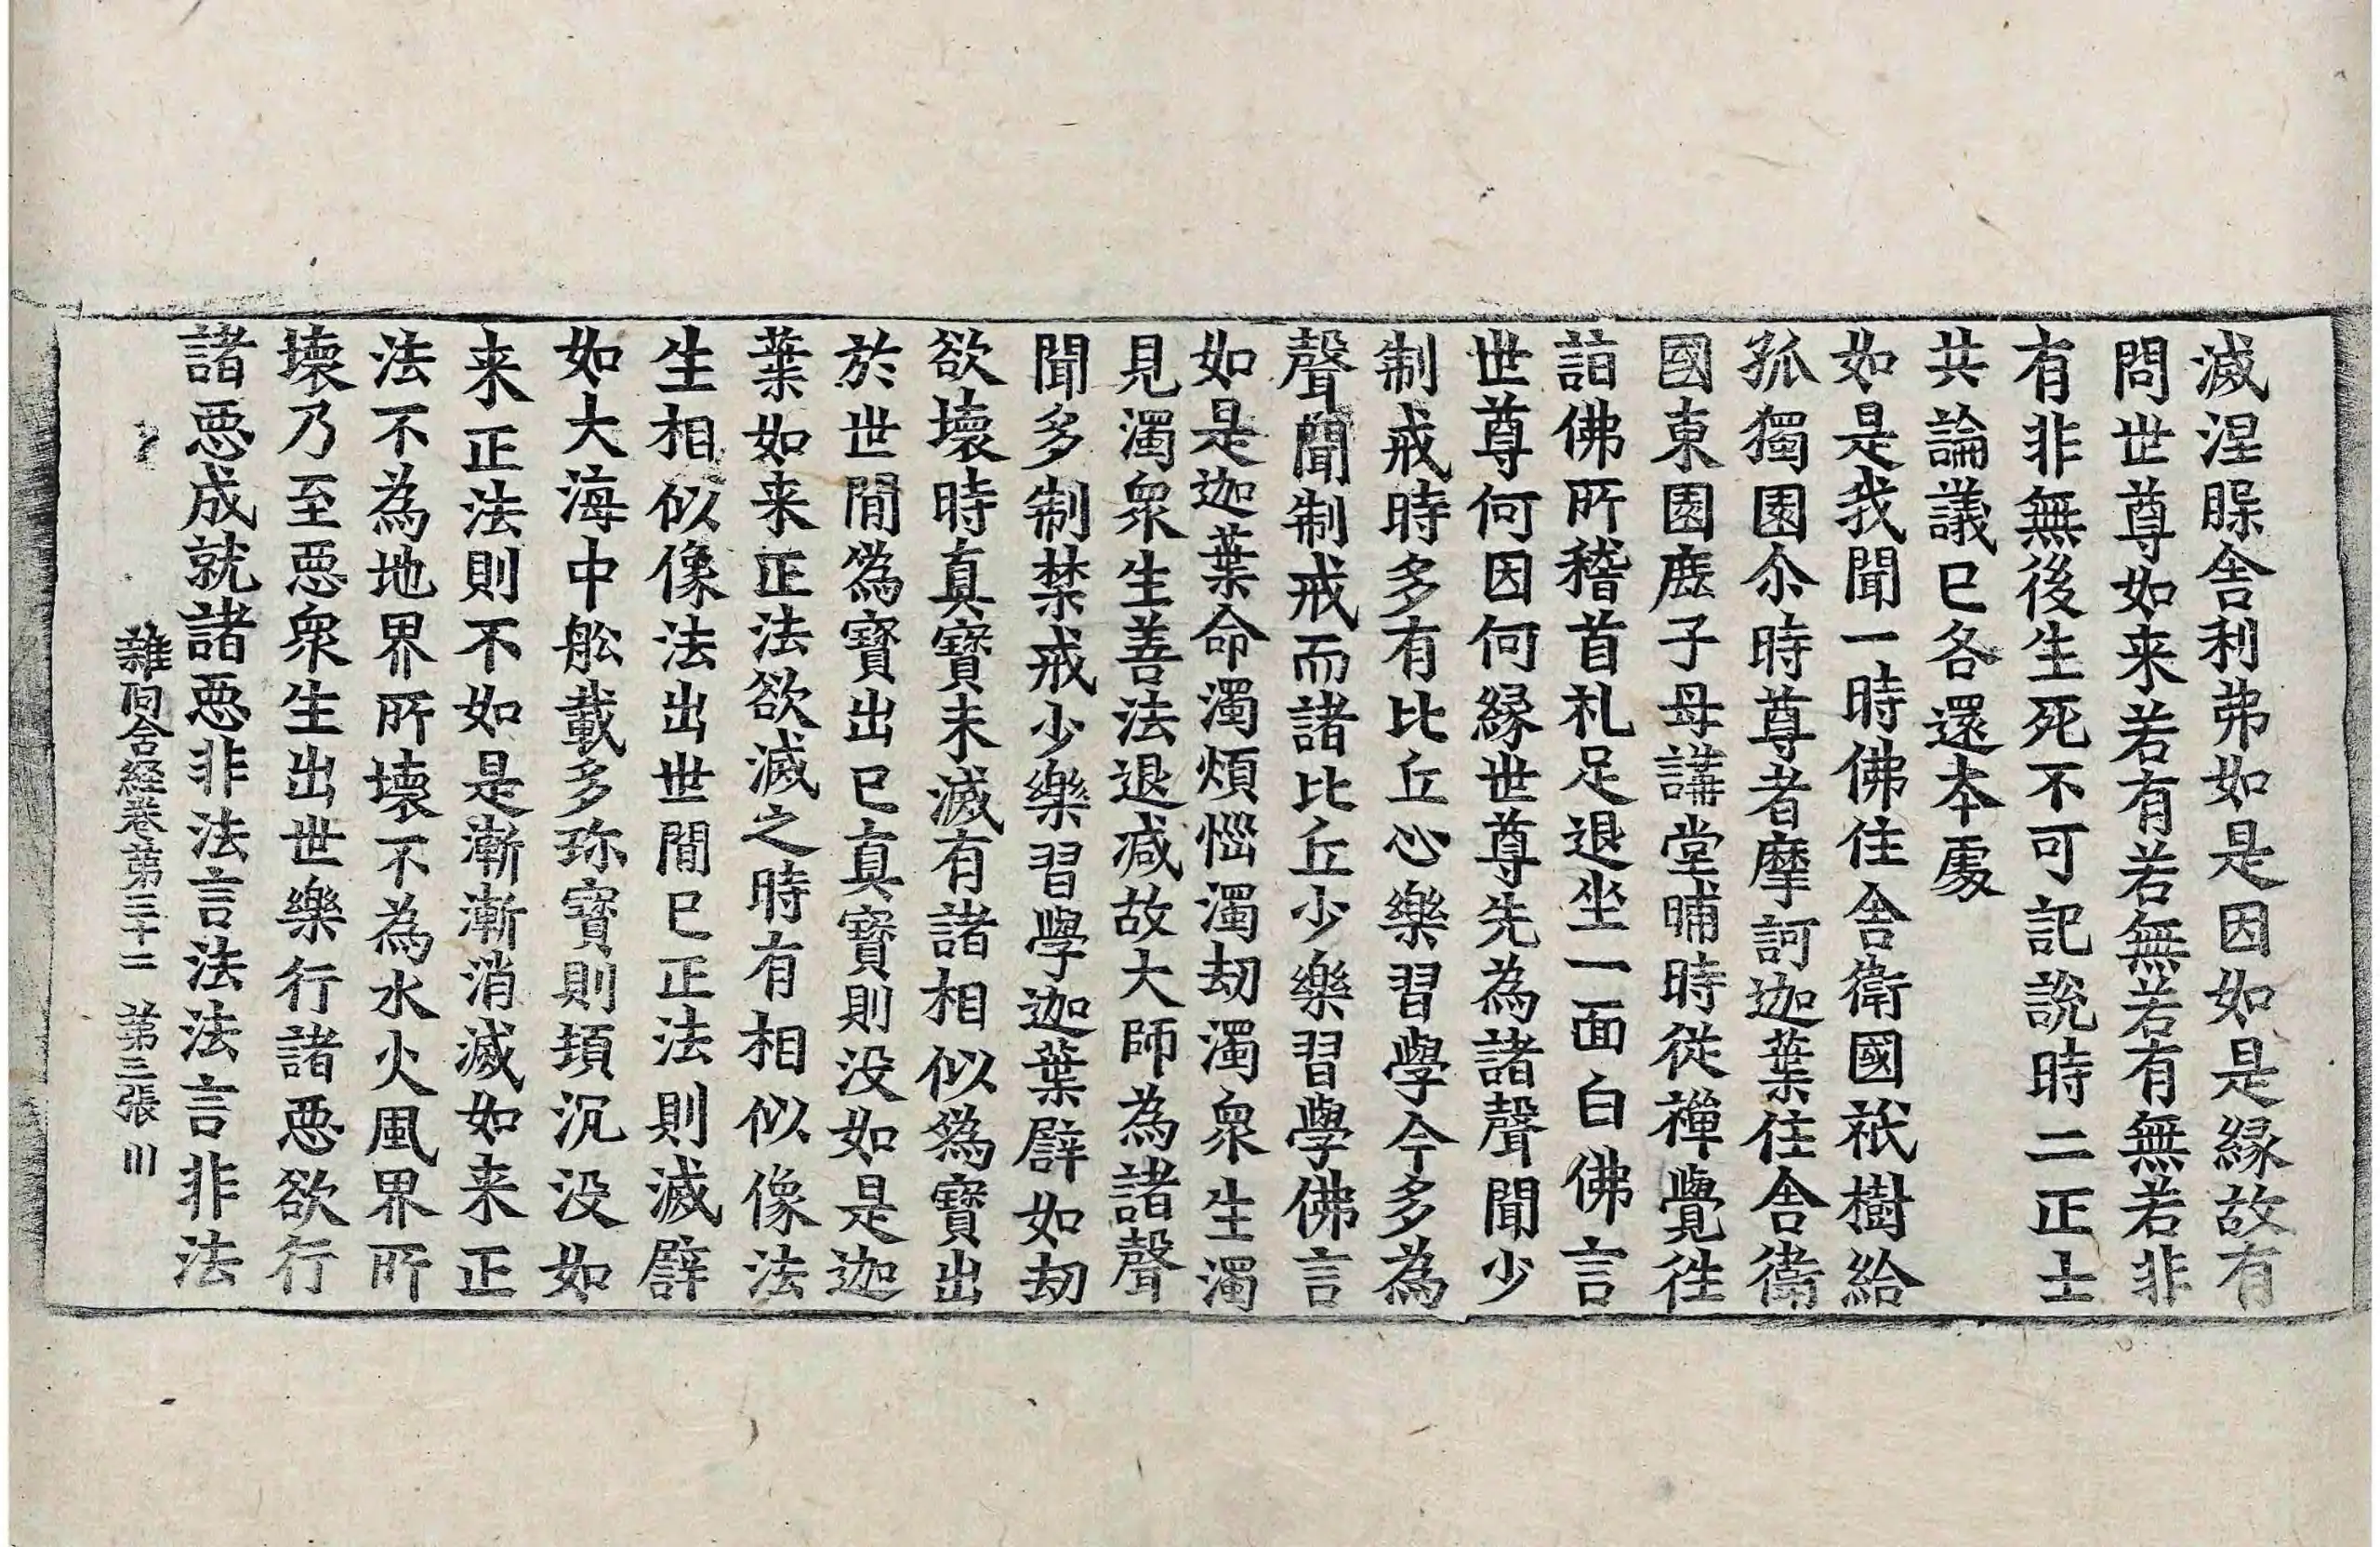 滅涅槃舍利弗如是因如是縁故有
問世尊如来若有若無若有無若非
有非無後生死不可記說時二正士
共論議已各還本處
如是我聞一時佛住舍衛國祇樹給
孤獨園尒時尊者摩訶迦葉住舍衛
國東園鹿子母講堂晡時從禪覺往
詣佛所稽首礼足退坐一面白佛言
世尊何因何縁世尊先為諸聲聞少
制戒時多有比丘心樂習學今多為
聲聞制戒而諸比丘少樂習學佛言
如是迦葉命濁煩惱濁劫濁衆生濁
見濁衆生善法退减故大師為諸聲
聞多制禁戒少樂習學迦葉譬如劫
欲壞時真寶未滅有諸相似偽寶出
於世間偽寶出已真寶則没如是迦
葉如来正法欲滅之時有相似像法
生相似像法出世間已正法則滅譬
如大海中舩載多珎寶則頓沉没如
来正法則不如是漸漸消滅如来正
法不為地界所壞不為水火風界所
壞乃至惡衆生出世樂行諸惡欲行
諸惡成就諸惡非法言法法言非法
雜阿含経卷第三十二 第三張